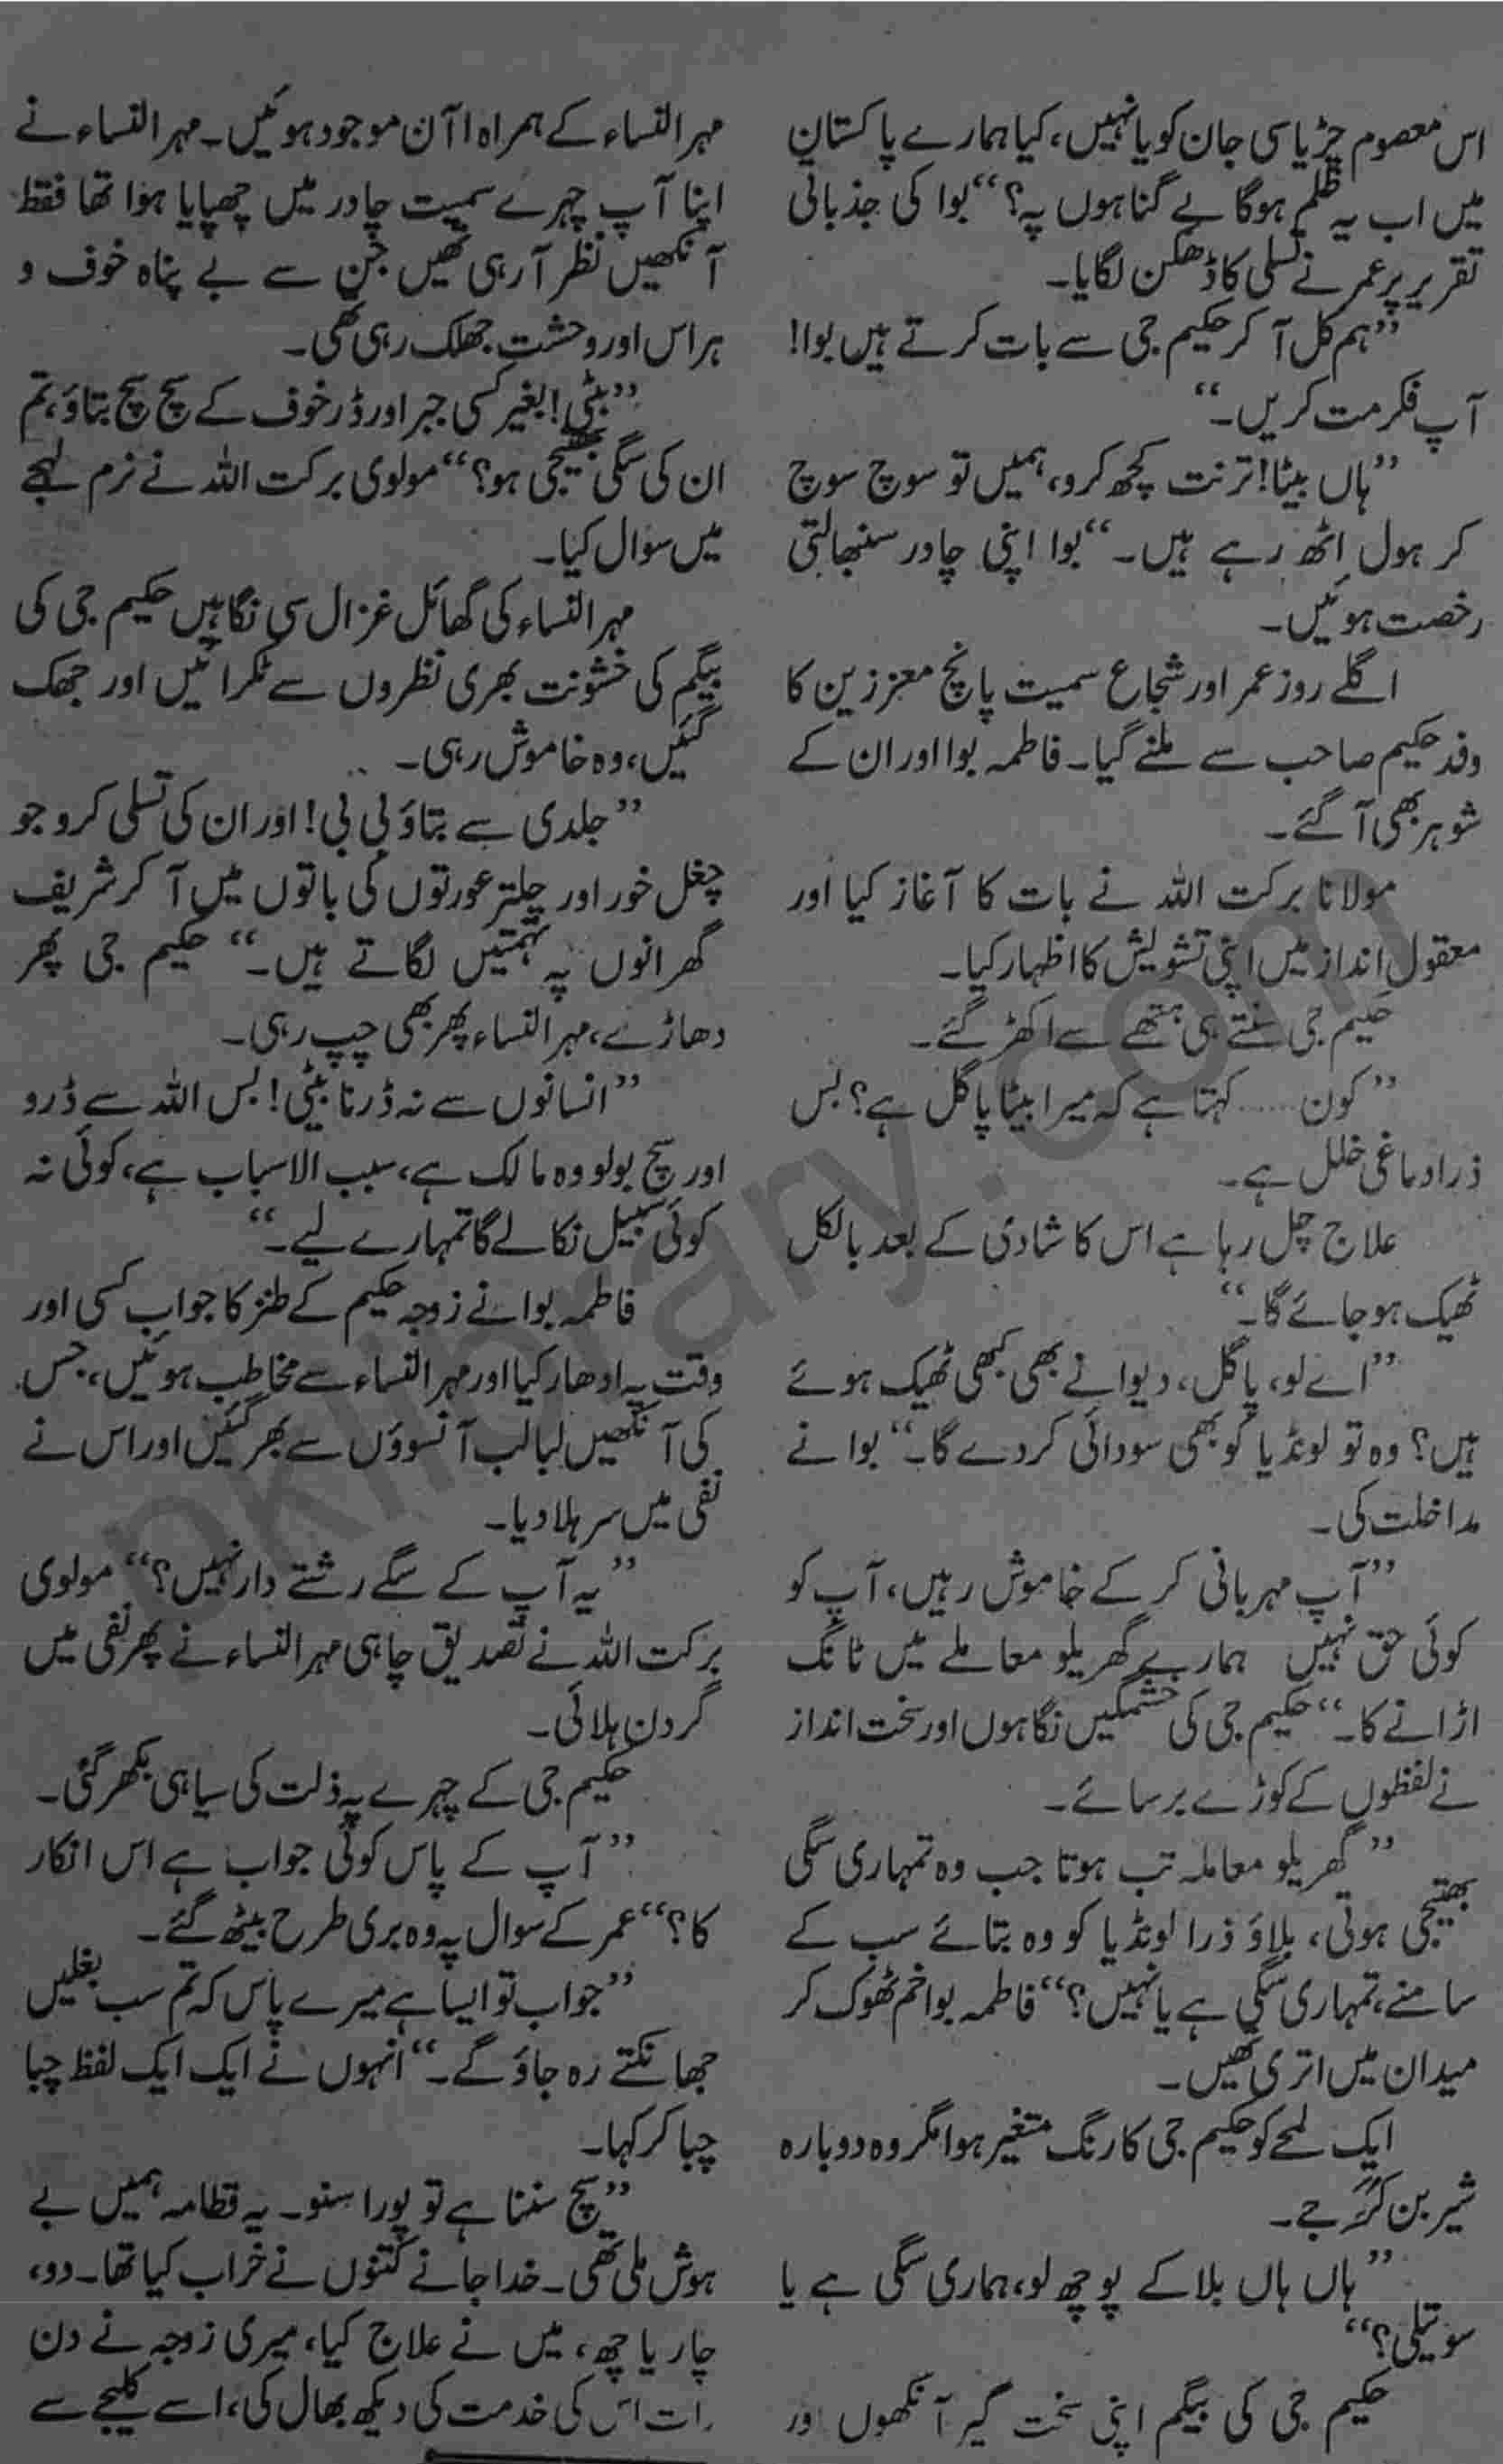 اس معصوم چڑیا سی جان کو یا نہیں، کیا ہمارے پاکستان
میں اب یہ ظلم ہوگا بے گناہوں پہ؟“ بوا کی جذباتی
تقریر پر عمر نے تسلی کا ڈھکن لگایا۔
”ہم کل آ کر حکیم جی سے بات کرتے ہیں بوا!
آپ فکر مت کریں۔“
”ہاں بیٹا! ترنت کچھ کرو، ہمیں تو سوچ سوچ
کر ہول اٹھ رہے ہیں۔“ بوا اپنی چادر سنبھالتی
رخصت ہوئیں۔
اگلے روز عمر اور شجاع سمیت پانچ معززین کا
وفد حکیم صاحب سے ملنے گیا۔ فاطمہ بوا اور ان کے
شوہر بھی آ گئے۔
مولانا برکت اللہ نے بات کا آغاز کیا اور
معقول انداز میں اپنی تشویش کا اظہار کیا۔
حکیم جی سنتے ہی ہتھے سے اکھڑ گئے۔
”کون ...... کہتا ہے کہ میرا بیٹا پاگل ہے؟ بس
ذرا دماغی خلل ہے۔
علاج چل رہا ہے اس کا شادی کے بعد بالکل
ٹھیک ہو جائے گا۔“
”اے لو، پاگل، دیوانے بھی کبھی ٹھیک ہوئے
ہیں؟ وہ تو لونڈیا کو بھی سودائی کر دے گا۔“ بوا نے
مداخلت کی۔
”آپ مہربانی کر کے خاموش رہیں، آپ کو
کوئی حق نہیں ہمارے گھریلو معاملے میں ٹانگ
اڑانے کا۔“ حکیم جی کی خشمگیں نگاہوں اور سخت انداز
نے لفظوں کے کوڑے برسائے۔
”گھریلو معاملہ تب ہوتا جب وہ تمہاری سگی
بھتیجی ہوتی، بلاؤ ذرا لونڈیا کو وہ بتائے سب کے
سامنے، تمہاری سگی ہے یا نہیں؟“ فاطمہ بوا خم ٹھوک کر
میدان میں اتری تھیں۔
ایک لمحے کو حکیم جی کا رنگ متغیر ہوا مگر وہ دوبارہ
شیر بن کر گرجے۔
”ہاں ہاں بلا کے پوچھ لو، ہماری سگی ہے یا
سوتیلی؟“
حکیم جی کی بیگم اپنی سخت گیر آنکھوں اور
مہر النساء کے ہمراہ آن موجود ہوئیں۔ مہر النساء نے
اپنا آپ چہرے سمیت چادر میں چھپایا ہوا تھا فقط
آنکھیں نظر آرہی تھیں جن سے بے پناہ خوف و
ہراس اور وحشت جھلک رہی تھی۔
”بیٹی! بغیر کسی جبر اور ڈر خوف کے سچ سچ بتاؤ، تم
ان کی سگی بھتیجی ہو؟“ مولوی برکت اللہ نے نرم لہجے
میں سوال کیا۔
مہر النساء کی گھائل غزال سی نگاہیں حکیم جی کی
بیگم کی خشونت بھری نظروں سے ٹکرائیں اور جھک
گئیں، وہ خاموش رہی۔
”جلدی سے بتاؤ بی بی! اور ان کی تسلی کرو جو
چغل خور اور چلتر عورتوں کی باتوں میں آ کر شریف
گھرانوں پہ تہمتیں لگاتے ہیں۔“ حکیم جی پھر
دھاڑے، مہر النساء پھر بھی چپ رہی۔
”انسانوں سے نہ ڈرنا بیٹی! بس اللہ سے ڈرو
اور سچ بولو وہ مالک ہے، سبب الاسباب ہے، کوئی نہ
کوئی سبیل نکالے گا تمہارے لیے۔“
فاطمہ بوا نے زوجہ حکیم کے طنز کا جواب کسی اور
وقت پہ ادھار کیا اور مہر النساء سے مخاطب ہوئیں، جس
کی آنکھیں لبالب آنسوؤں سے بھر گئیں اور اس نے
نفی میں سر ہلا دیا۔
”یہ آپ کے سگے رشتے دار نہیں؟“ مولوی
برکت اللہ نے تصدیق چاہی مہر النساء نے پھر نفی میں
گردن ہلائی۔
حکیم جی کے چہرے پہ ذلت کی سیاہی بکھر گئی۔
”آپ کے پاس کوئی جواب ہے اس انکار
کا؟“ عمر کے سوال پہ وہ بری طرح بیٹھ گئے۔
”جواب تو ایسا ہے میرے پاس کہ تم سب بغلیں
جھانکتے رہ جاؤ گے۔“ انہوں نے ایک ایک لفظ چبا
چبا کر کہا۔
”سچ سننا ہے تو پورا سنو۔ یہ قطامہ ہمیں بے
ہوش ملی تھی۔ خدا جانے کتنوں نے خراب کیا تھا۔ دو،
چار یا چھ، میں نے علاج کیا، میری زوجہ نے دن
رات اس کی خدمت کی دیکھ بھال کی، اسے کلیجے سے
pklibrary.com